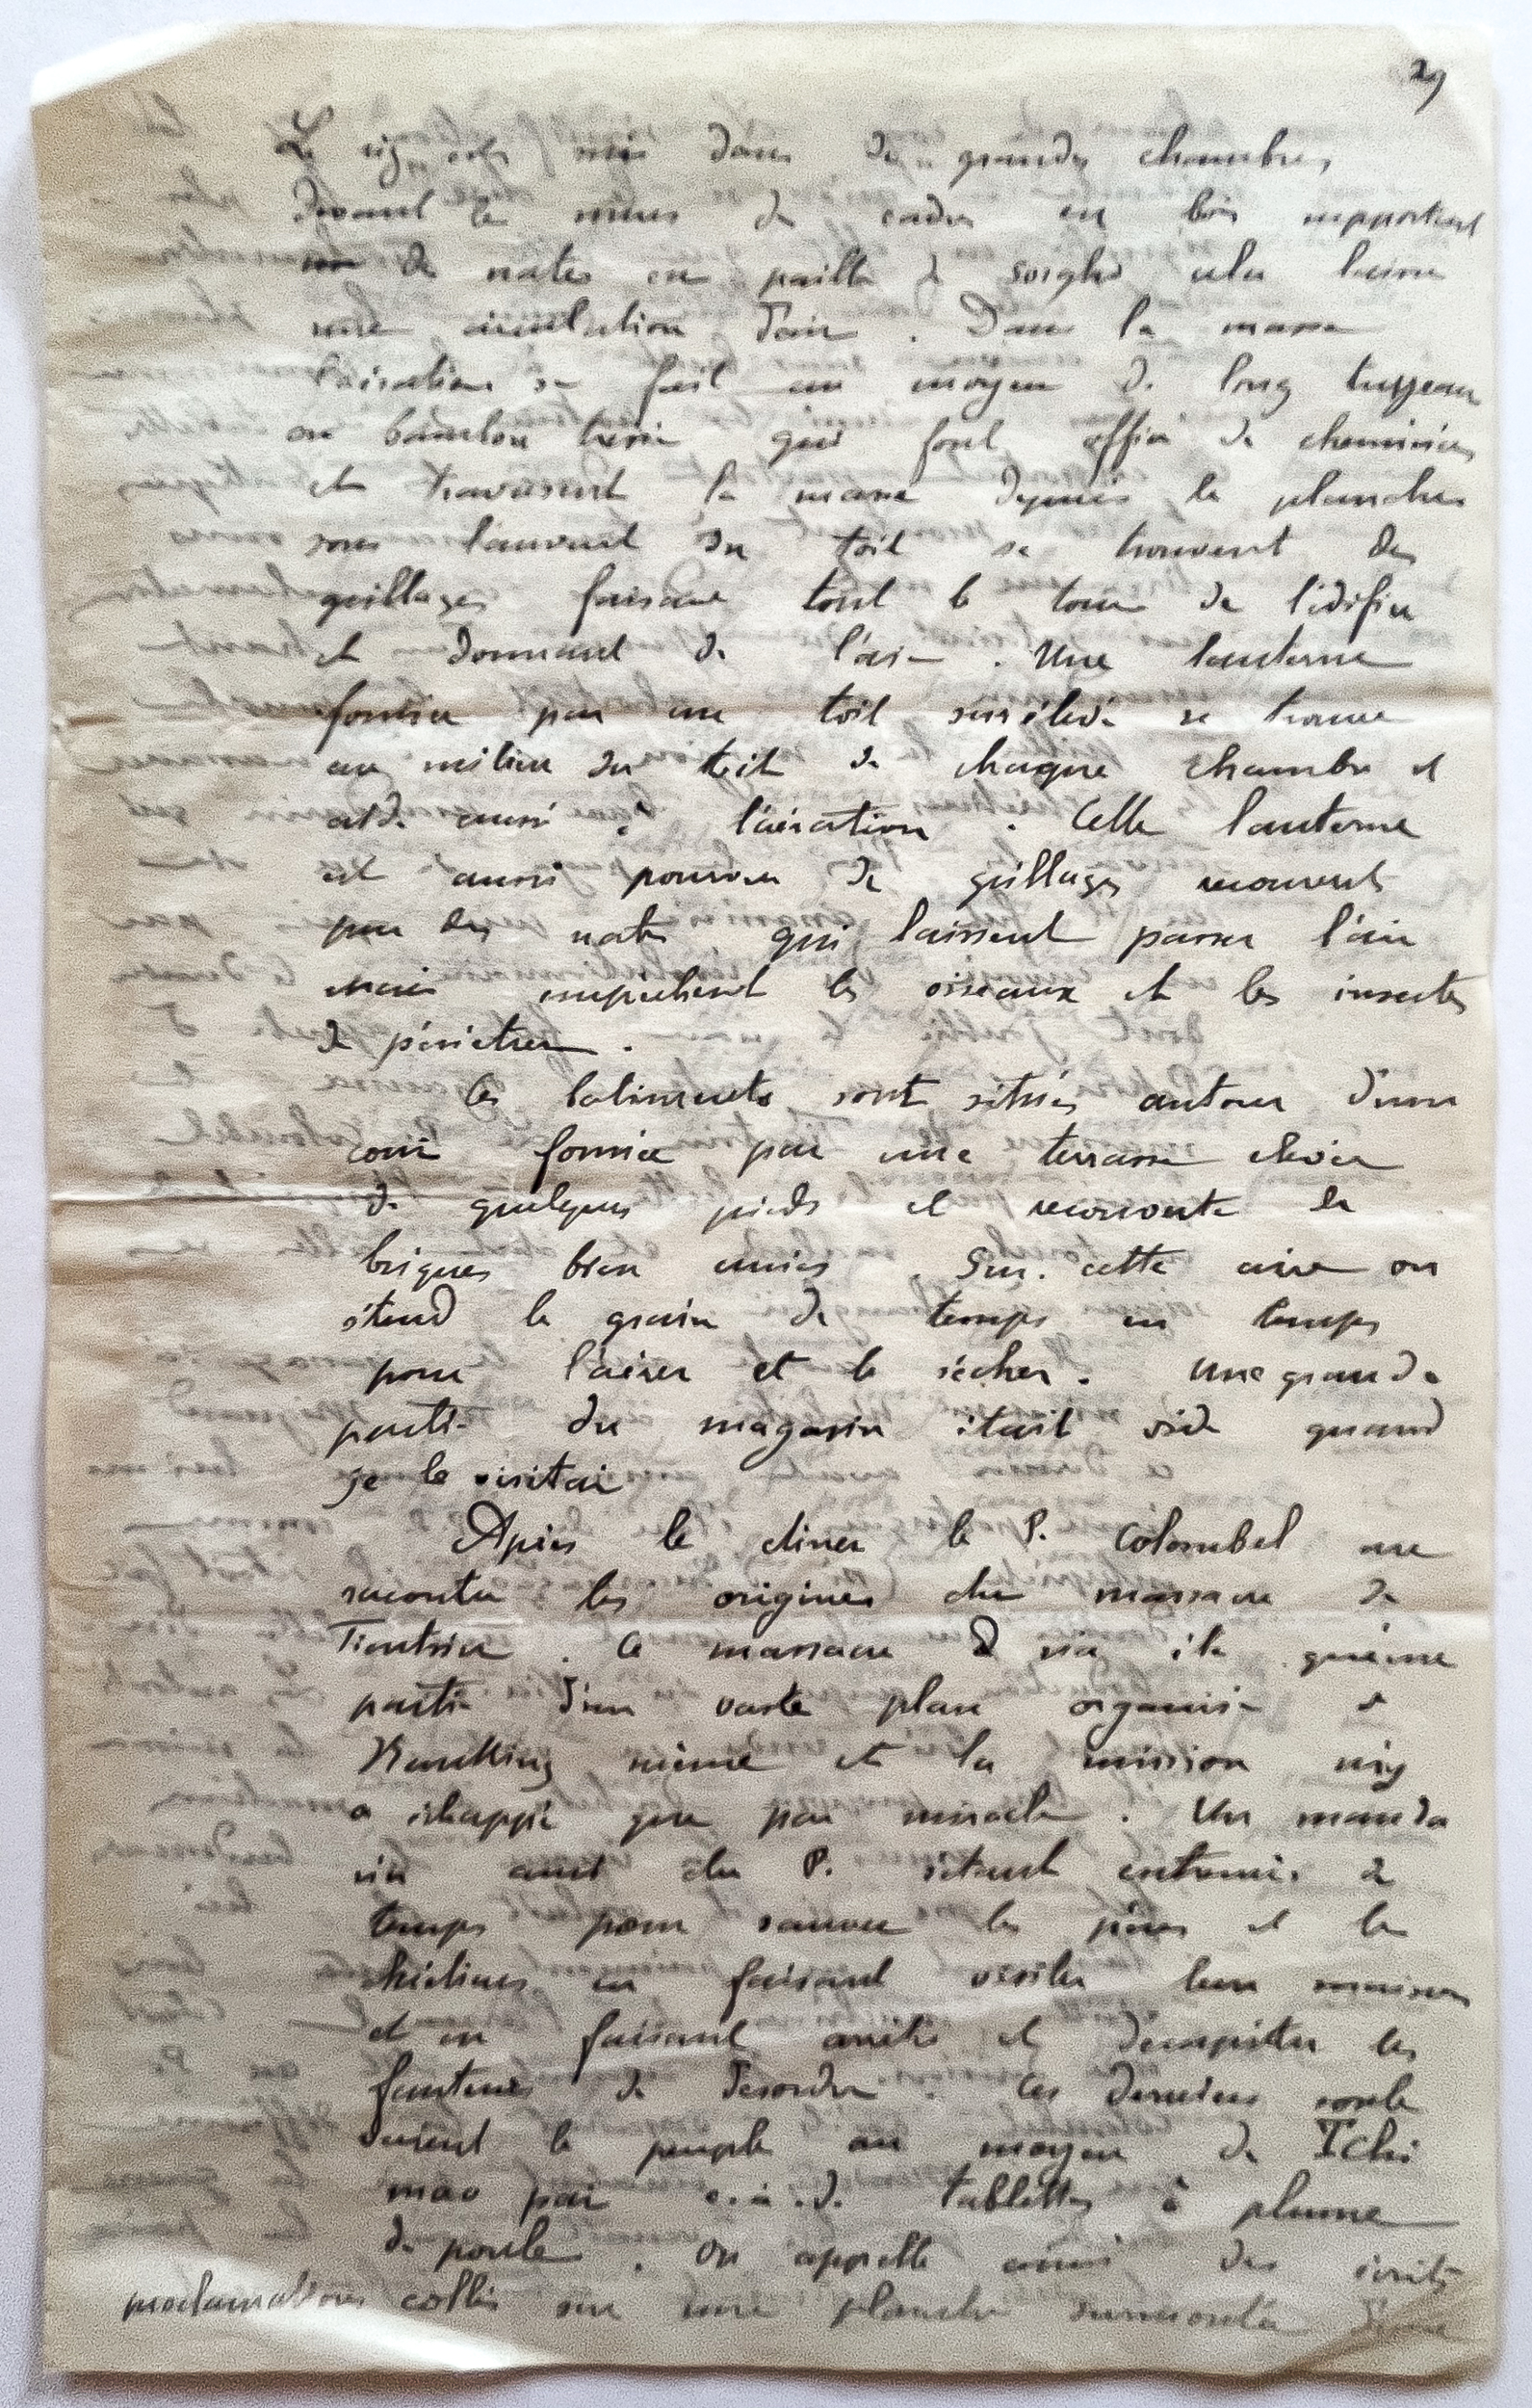 29
Le riz est mis dans de grandes chambres
devant le murs de cadres en bois supportent
de nates en paille de sorgho cela laisse
une circulation d'air . Dans la masse
l'aération se fait au moyen de long tuyeau
en bambou tressé qui font office de cheminées
et traversent la masse depuis le plancher
sous l'auvent du toit se trouvent des
grillages faisant tout le tour de l'édifice
et donnant de l'air . Une lanterne
formée par un toit surélevé se trouve
au milieu du toit de chaque chambre et
aide aussi à l'aération . Cette lanterne
est aussi pourvue de grillages recouverts
par des nates qui laissent passer l'air
mais empêchent les oiseaux et les insectes
de pénétrer .
Ces batiments sont situés autour d'une
cour formée par une terrasse élevée
de quelques pieds et recouverte de
briques bien unies . Sur cette aire on
étend le grain de temps en temps
pour l'aérer et le sécher . Une grande
partie du magasin était vide quand
je le visitai
Après le diner le P. Colombel me
raconta les origines du massacre de
Tientsin . Ce massacre n'a été qu'une
partie d'un vaste plan organisé à
Nanking même et la mission n'y
a échappé que par miracle . Un manda
rin ami du P. s'étant entremis à
temps pour sauver les pères et les
chrétiens en faisant visiter leur maison
et en faisant arrêter et décapiter les
fauteurs de desordre . Ces derniers soule
vaient le peuple au moyen de Tchi
mao pai c.à.d. tablettes à plume
de poule . On appelle ainsi des écrits
proclamations collés sur une planche surmontée d'une